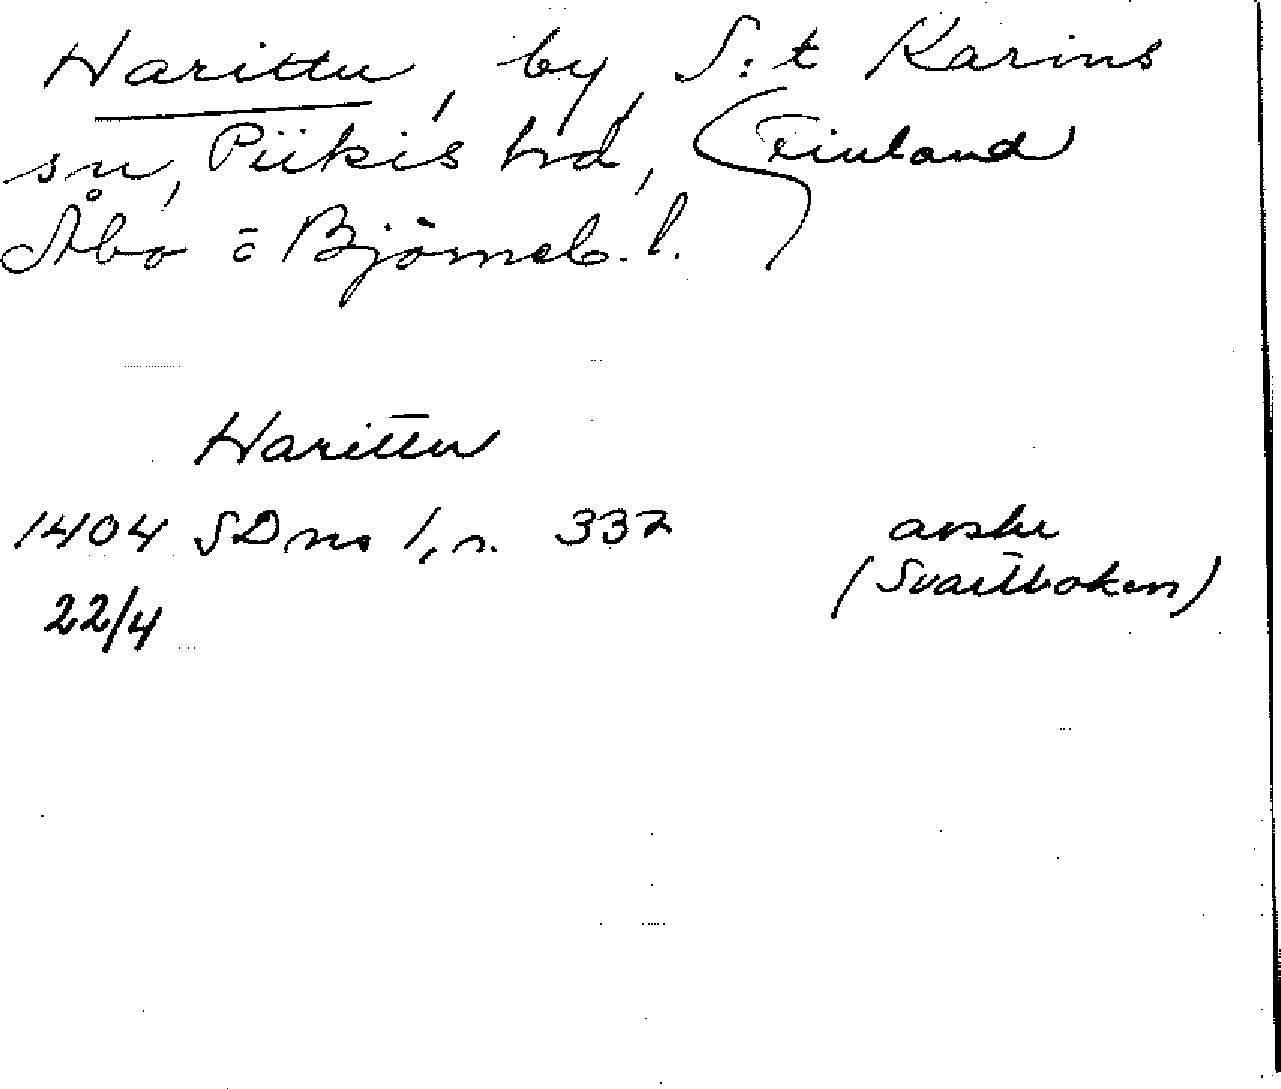 Harittu, by, S:t Karins
sn, Piikis hd, Finland
Åbo o Björneb. l.
Harittu
1404 SDns 1, s. 337 avskr
22/4 (Svartboken)